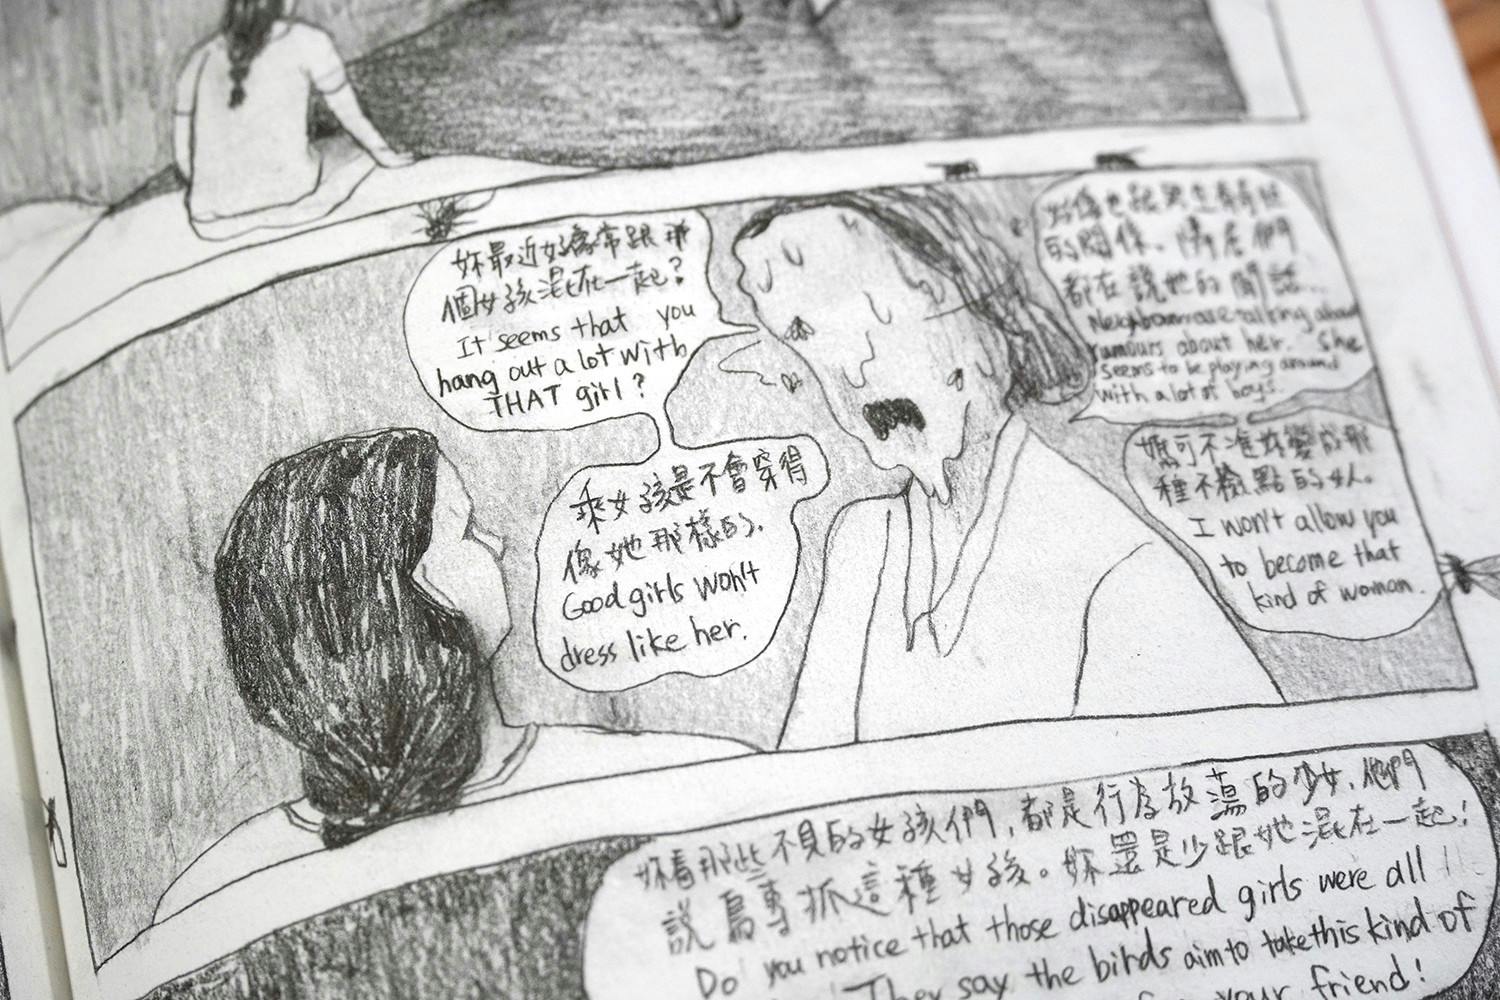 妳最近好像常跟那
個女孩混在一起?
It seems that you
hang out a lot with
THAT girl?
乖女孩是不會穿得
像她那樣的.
Good girls won't
dress like her.
好像也跟男生有
的關係.
都在說她的閒話...
Neighbours are talking about
rumours about her. She
seems to be playing around
with a lot of boys.
媽可不准妳變成那
種不檢點的女人。
I won't allow you
to become that
kind of woman.
妳看那些不見的女孩們,都是行為放蕩的少女,他們
說鳥專抓這種女孩。妳還是少跟她混在一起!
Do you notice that those disappeared girls were all
They say the birds aim to take this kind of
your friend!